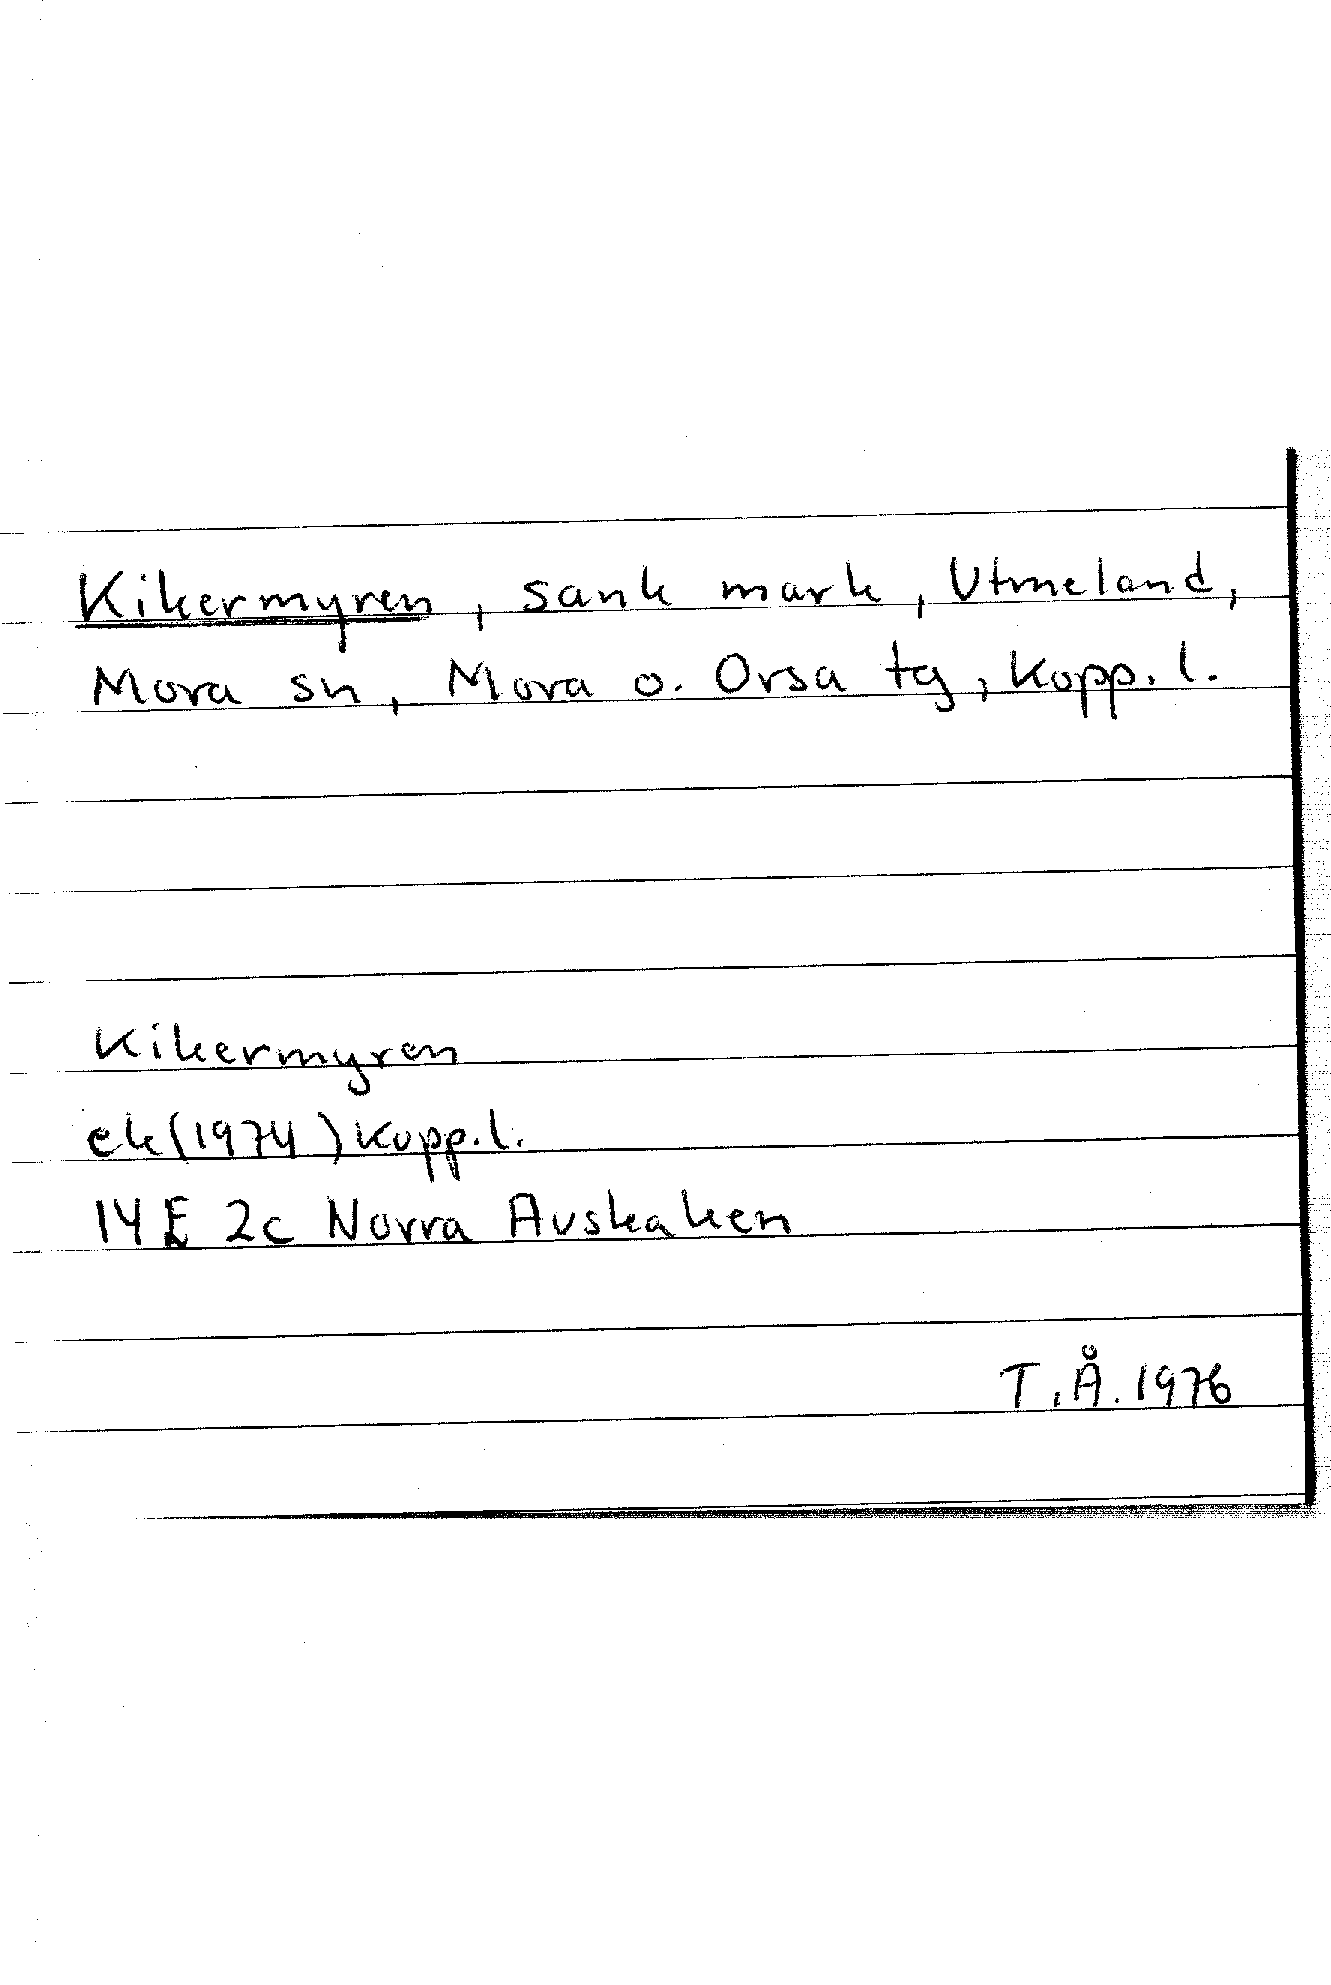 Kikermyren, sank mark, Utmeland,
Mora sn, Mora o. Orsa tg, Kopp. l.
Kikermyren
ek(1974) Kopp. l.
14E 2c Norra Avskaken
T.Å. 1976